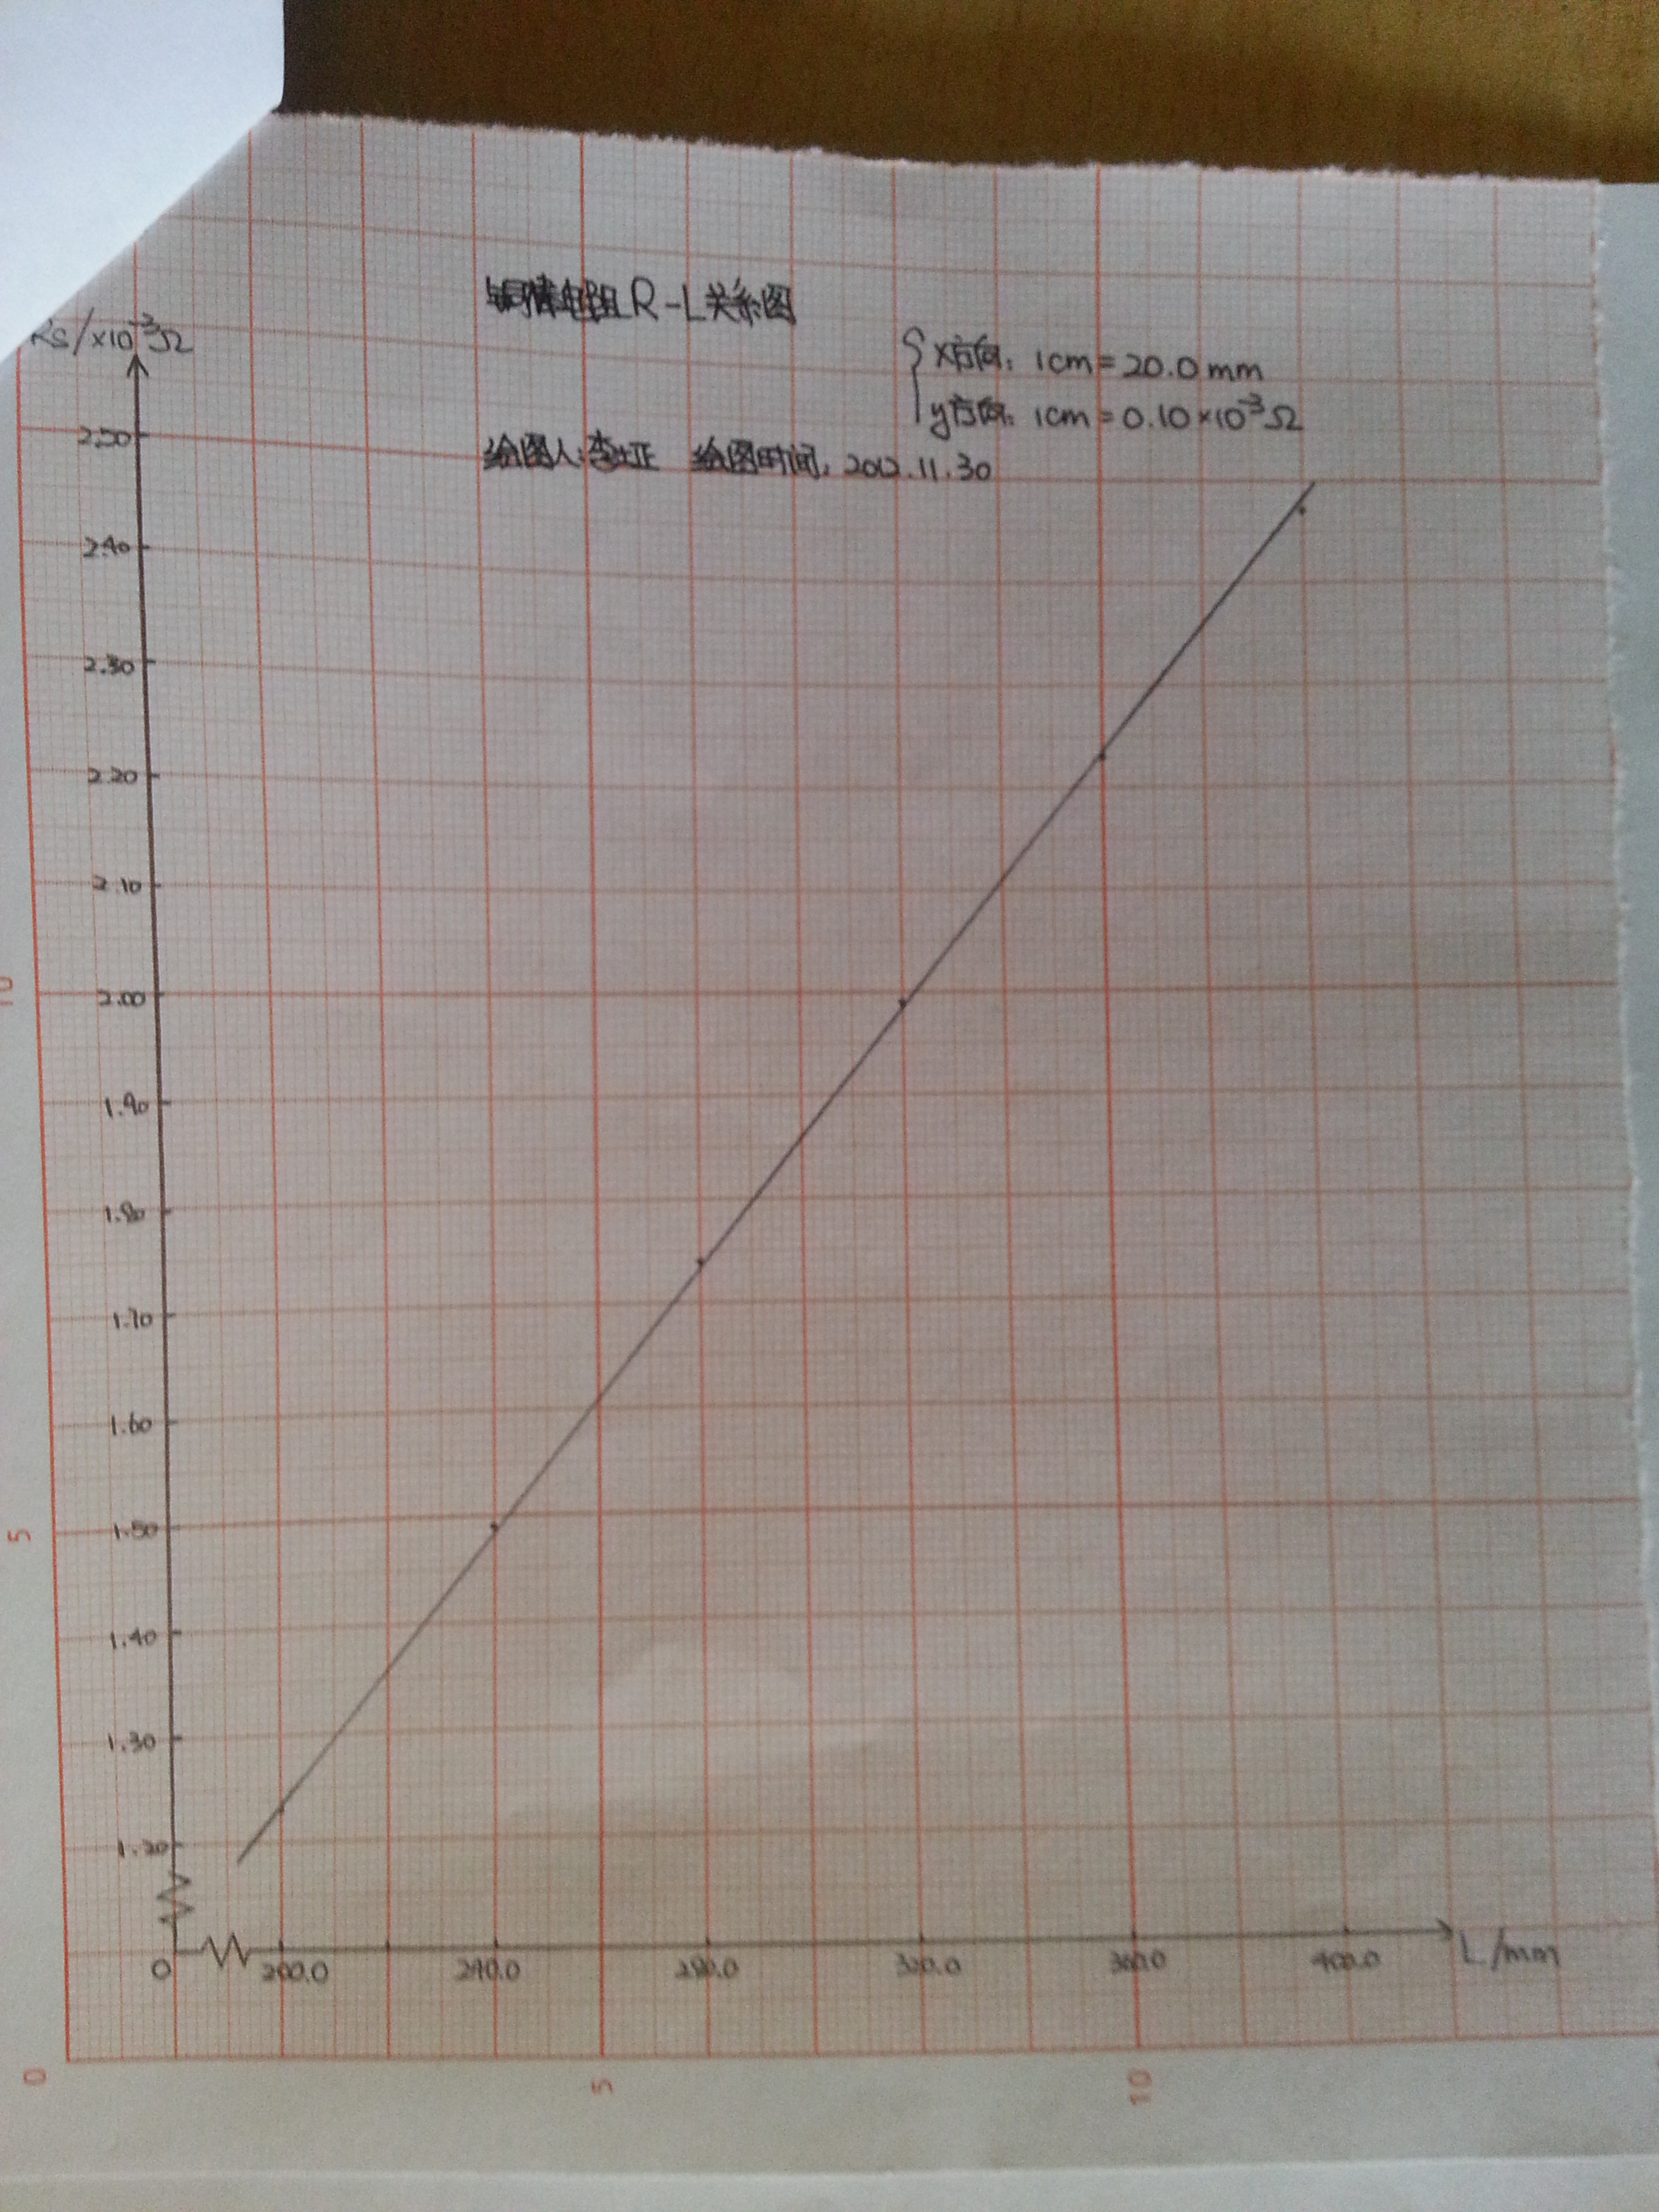 铜棒电阻R-L关系图
Rs/×10⁻³Ω
x方向: 1cm=20.0mm
y方向: 1cm=0.10×10⁻³Ω
绘图人: 李 正 绘图时间: 2012.11.30
2.50
2.40
2.30
2.20
2.10
2.00
1.90
1.80
1.70
1.60
1.50
1.40
1.30
1.20
0 200.0 240.0 280.0 320.0 360.0 400.0 L/mm
10
5
0
5
10